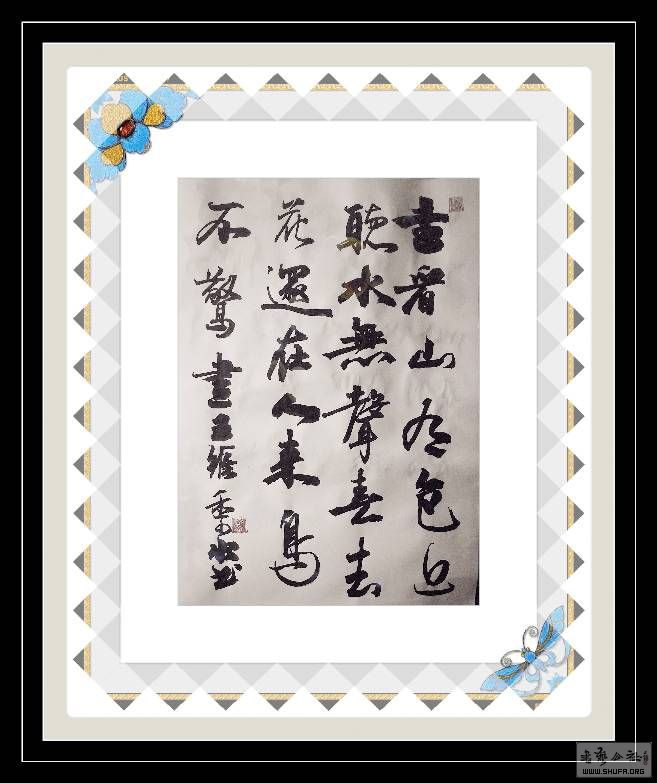 遠看山有色近
聽水無聲春去
花還在人来鳥
不驚 畫 王維
书艺公社
WWW.SHUFA.ORG